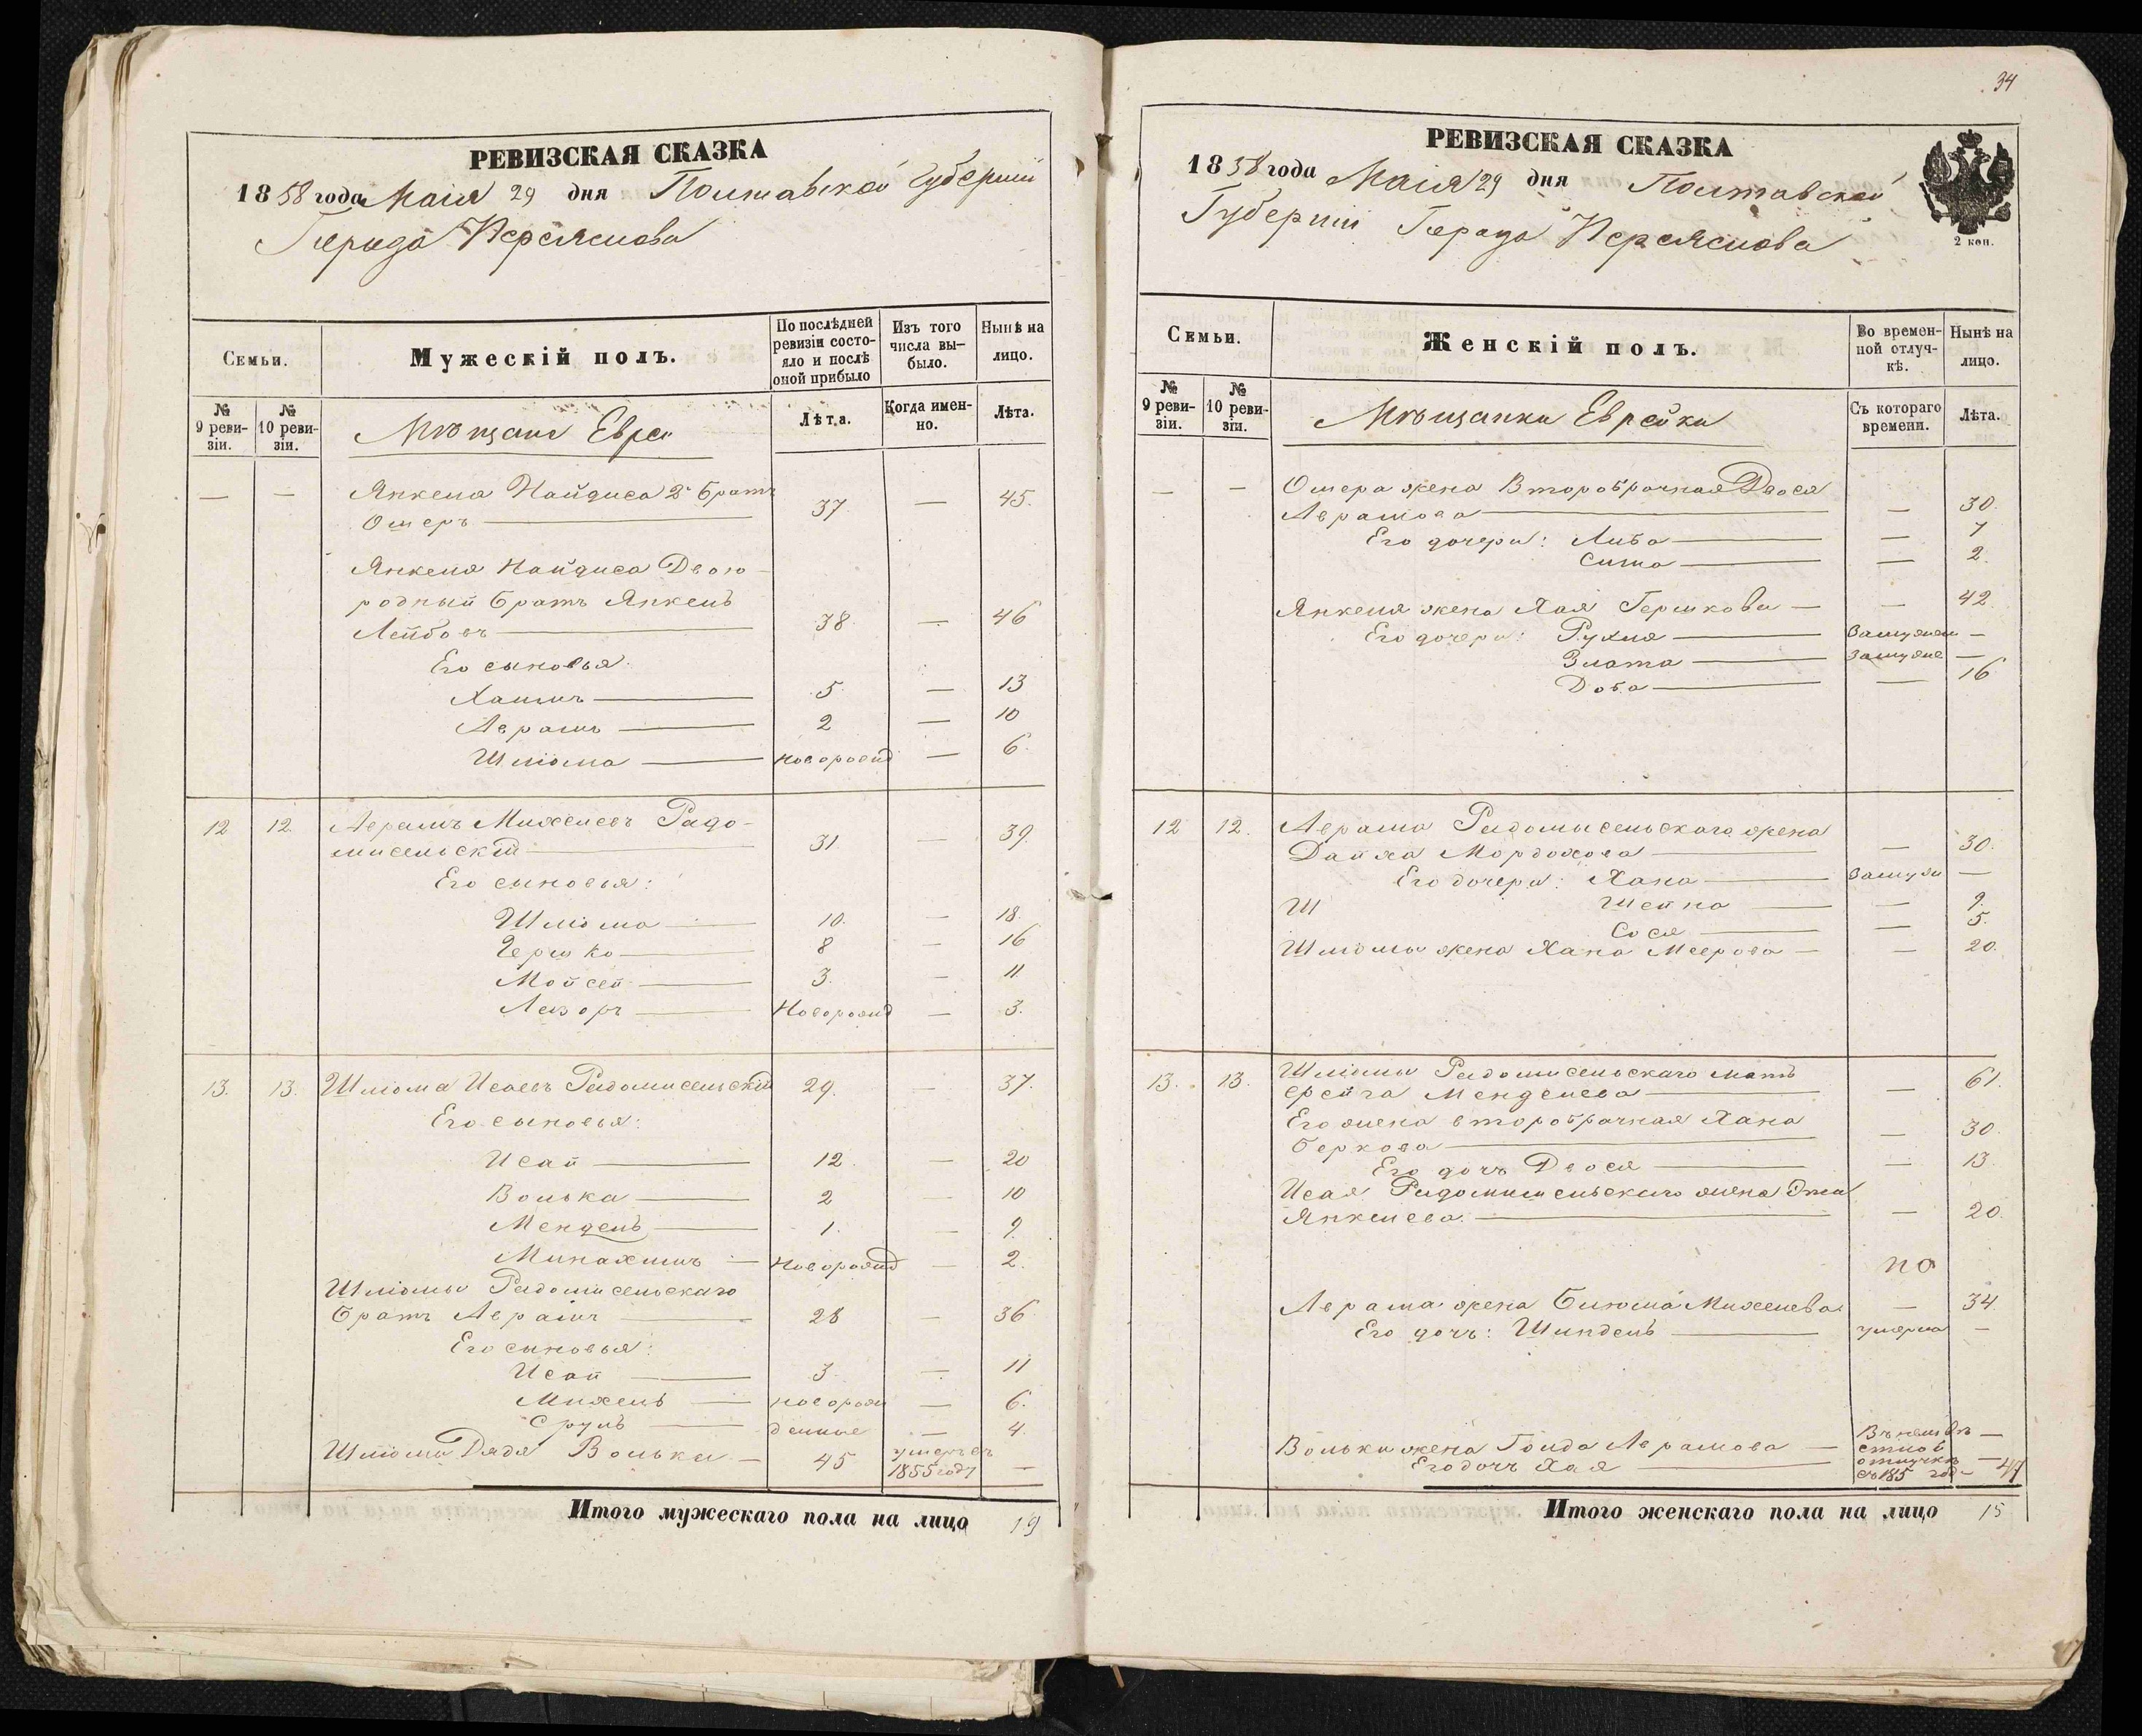 РЕВИЗСКАЯ СКАЗКА
1858 года Маія 29 дня Полтавской Губерніи
Города Переяслова
Семьи.
Мужескій полъ.
По послѣдней
ревизіи состо-
яло и послѣ
оной прибыло
Изъ того
числа вы-
было.
Нынѣ на
лицо.
№
9 реви-
зіи.
№
10 реви-
зіи.
Мѣщане Евреи
Лѣта.
Когда имен-
но.
Лѣта.
— — Янкеля Найдиса 2й братъ
Ошеръ — 37 — 45.
Янкеля Найдиса Двою-
родный братъ Янкель
Лейбовъ — 38 — 46
Его сыновья:
Хаимъ — 5. — 13
Аврамъ — 2 — 10
Шліома — новорожд — 6.
12 12. Аврамъ Михелевъ Радо-
мисельскій — 31 — 39.
Его сыновья:
Шліома — 10. — 18.
Гершко — 8 — 16
Мойсей — 3. — 11.
Лезоръ — Новорожд — 3.
13. 13. Шліома Исаевъ Радомисельскій 29. — 37.
Его сыновья:
Исай — 12. — 20
Волька — 2 — 10
Мендель — 1. — 9.
Минахимъ — Новорожд — 2.
Шліомы Радомисельскаго
братъ Аврамъ — 28 — 36
Его сыновья:
Исай — 3. — 11
Михель — новорож — 6.
Сруль — денные — 4.
Шліомы Дядя Волька — 45 умеръ въ
1855 году —
Итого мужескаго пола на лицо 19
34
РЕВИЗСКАЯ СКАЗКА
1858 года Маія 29 дня Полтавской
Губерніи Города Переяслова
2 коп.
Семьи.
Женскій полъ.
Во времен-
ной отлуч-
кѣ.
Нынѣ на
лицо.
№
9 реви-
зіи.
№
10 реви-
зіи.
Мѣщанки Еврейки
Съ котораго
времени.
Лѣта.
— — Ошера жена Второбрачная Двося
Аврамова — — 30.
Его дочери: Либа — — 7
Сима — — 2.
Янкеля жена Хая Гершкова — — 42.
Его дочери: Рухля — Замужем —
Злата — Замуже —
Доба — — 16
12 12. Аврама Радомисельскаго жена
Дайха Мордохова — — 30.
Его дочери: Хана — Замуж —
Ш Шейна — — 9.
Сося — — 5.
Шліомы жена Хана Меерова — — 20.
13. 13. Шліомы Радомисельскаго мать
Фрейга Менделева — — 61.
Его жена второбрачная Хана
Беркова — — 30.
Его дочь Двося — — 13
Исая Радомисельскаго жена
Янкелева — — 20.
Аврама жена Блюма Михелева — 34.
Его дочь: Шиндель — умерла —
Вольки жена Гольда Аврамова —
Его дочь Хая —
отлучкѣ
съ 185 года
Итого женскаго пола на лицо 15